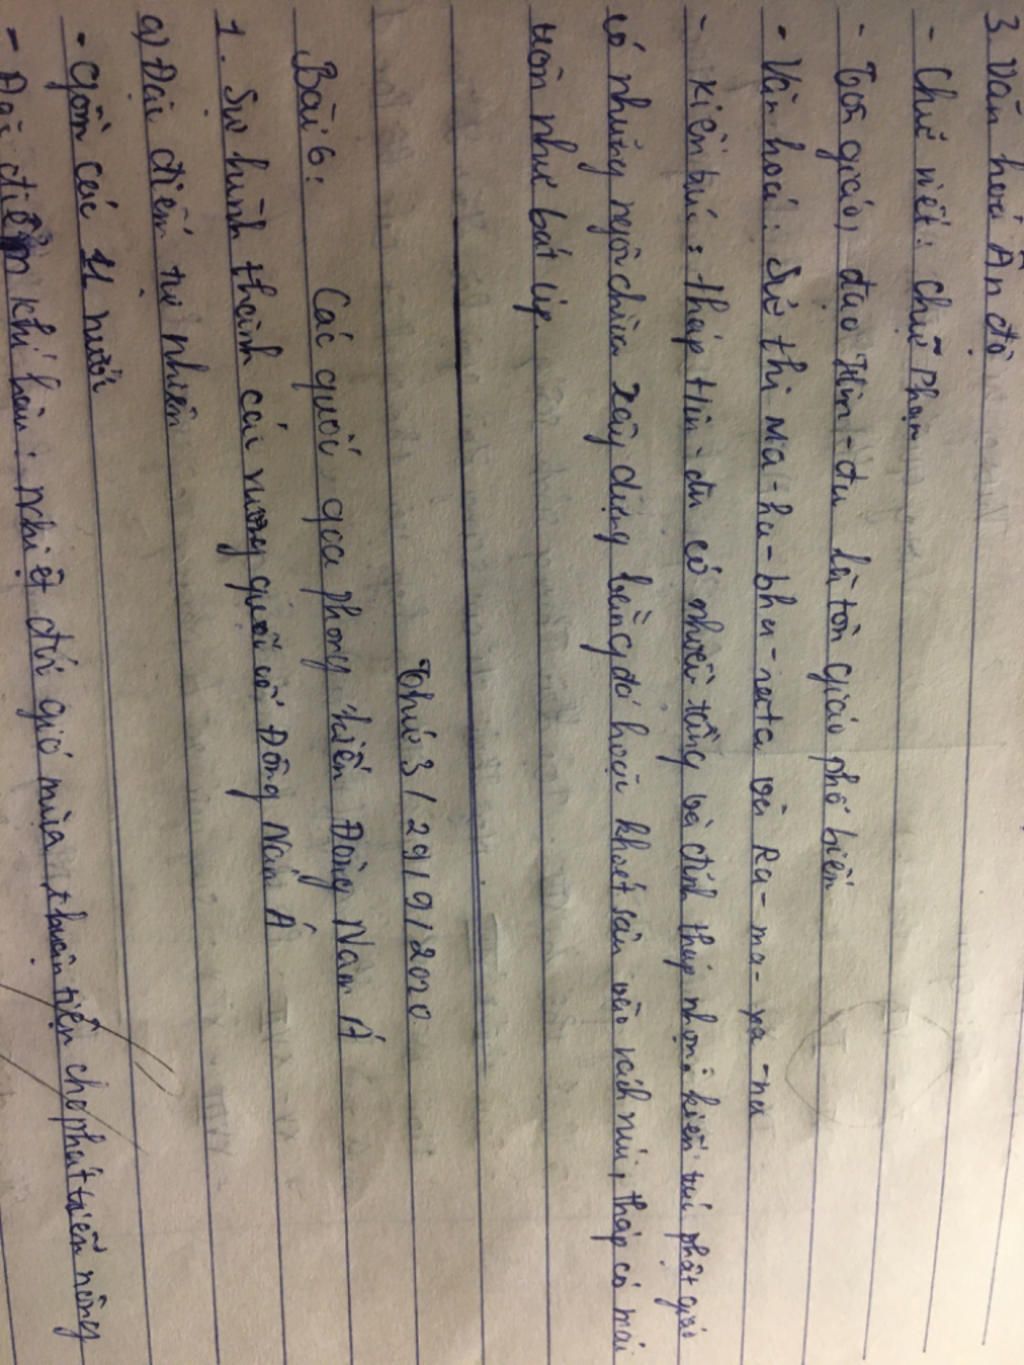 3. Văn hoá Ấn độ
- Chữ viết: chữ Phạn
- Tôn giáo, đạo Hin-đu là tôn giáo phổ biến
- Văn hoá: Sử thi Ma-ha-bha-rata và Ra-ma-ya-na
- Kiến trúc: tháp Hin-du có nhiều tầng và đỉnh tháp nhọn. kiến trúc phật giáo
có những ngôi chùa xây dựng bằng đá hoặc khoét sâu vào vách núi, tháp có mái
tròn như bát úp
Thứ 3 / 29 / 9 / 2020
Bài 6: Các quốc gia phong kiến Đông Nam Á
1. Sự hình thành các vương quốc cổ Đông Nam Á
a) Đặc điểm tự nhiên
- Gồm các 11 nước
- Đặc điểm khí hậu: nhiệt đới gió mùa, thuận tiện cho phát triển nông